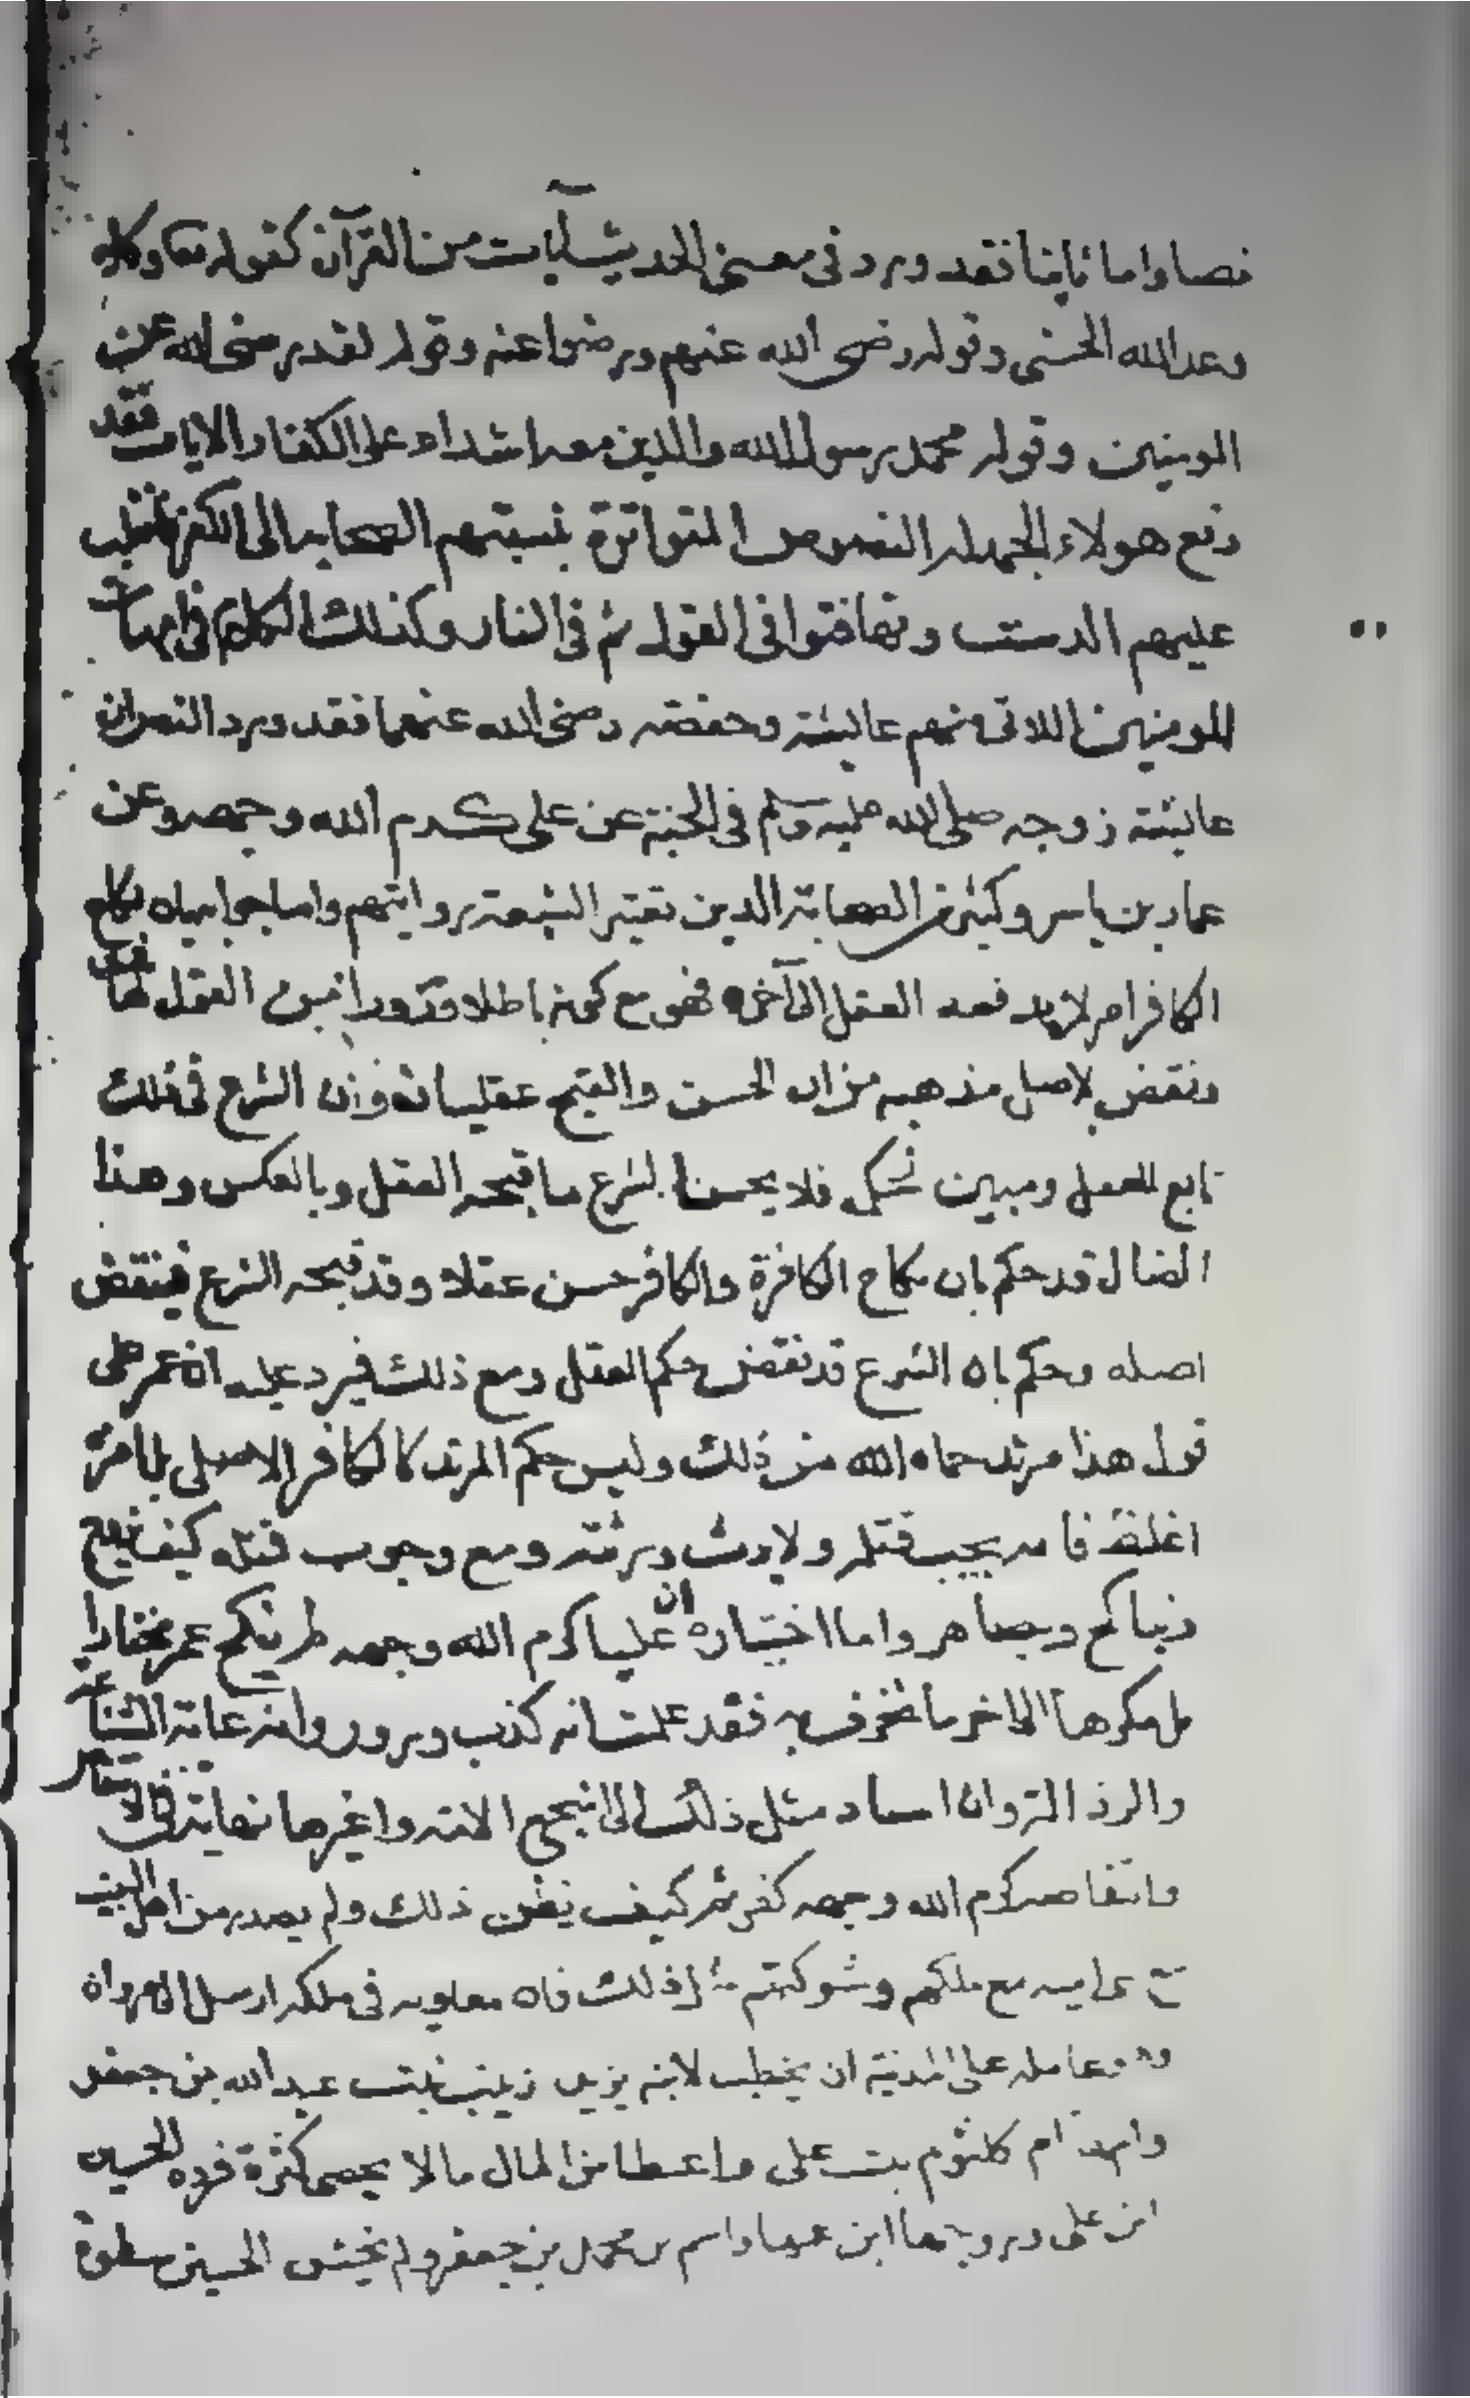 نصا واما ثانيا فقد ورد في معنى الحديث آيات من القرآن كقوله تعا وكلا
وعد الله الحسنى وقوله رضى الله عنهم ورضوا عنه وقوله لقد رضى الله عن
المومنين وقوله محمد رسول الله والذين معه اشداء على الكفار الايات فقد
دفع هولاء الجهلة النصوص المتواترة بنسبتهم الصحابة الى الكفر فانقلب
عليهم الدست وتهافتوا في القول ثم في النار وكذلك الكلام في امهات
المومنين اللاتي منهم عايشة وحفصة رضى الله عنهما فقد ورد النص ان
عايشة زوجه صلى الله عليه وسلم في الجنة عن علي كرم الله وجهه وعن
عمار بن ياسر وكثير من الصحابة الذين تعتبر الشيعة روايتهم واما جوابه بان نكاح
الكافر امر لم يدفعه العقل الى آخره فهو مع كونه باطلا وزورا بين العقل
ونقض لاصل مذهبه من ان الحسن والقبح عقليان وان الشرع في ذلك
تابع للعقل ومبين لحكمه فلا يحسن الشرع ما قبحه العقل وبالعكس وهذا
الضال قد حكم بان نكاح الكافرة والكافر حسن عقلا وقد قبحه الشرع فينقض
اصله وحكم بان الشرع قد نقض حكم العقل ومع ذلك فيرد عليه ان عمر على
قول هذا مرتد حماه الله من ذلك وليس حكم المرتد كالكافر الاصلي بل امره
اغلظ فانه يجب قتله ولا يرث ورثته ومع وجوب قتله كيف
ويصاهر واما اختياره ان عليا كرم الله وجهه لم ينكح عمر مختارا
بل مكرها الى اخر ما تخرف به فقد علمت انه كذب وزور وانه غاية الشناعة
والرذالة وان اسناد مثل ذلك الى الائمة وغيرها نهاية في
وانتقاصه كرم الله وجهه كفر ثم كيف يظن ذلك ولم يصدر من اهل البيت
مع بني امية مع ملكهم وشوكتهم مثل ذلك فان معاوية في ملكه ارسل الى مروان
وهو عامله على المدينة ان يخطب لابنه يزيد زينب بنت عبد الله بن جعفر
وامها ام كلثوم بنت علي واعطا من المال ما لا يحصى كثرة فرده الحسين
ابن علي وزوجها ابن عمها قاسم بن محمد بن جعفر ولم يخش الحسين سطوة